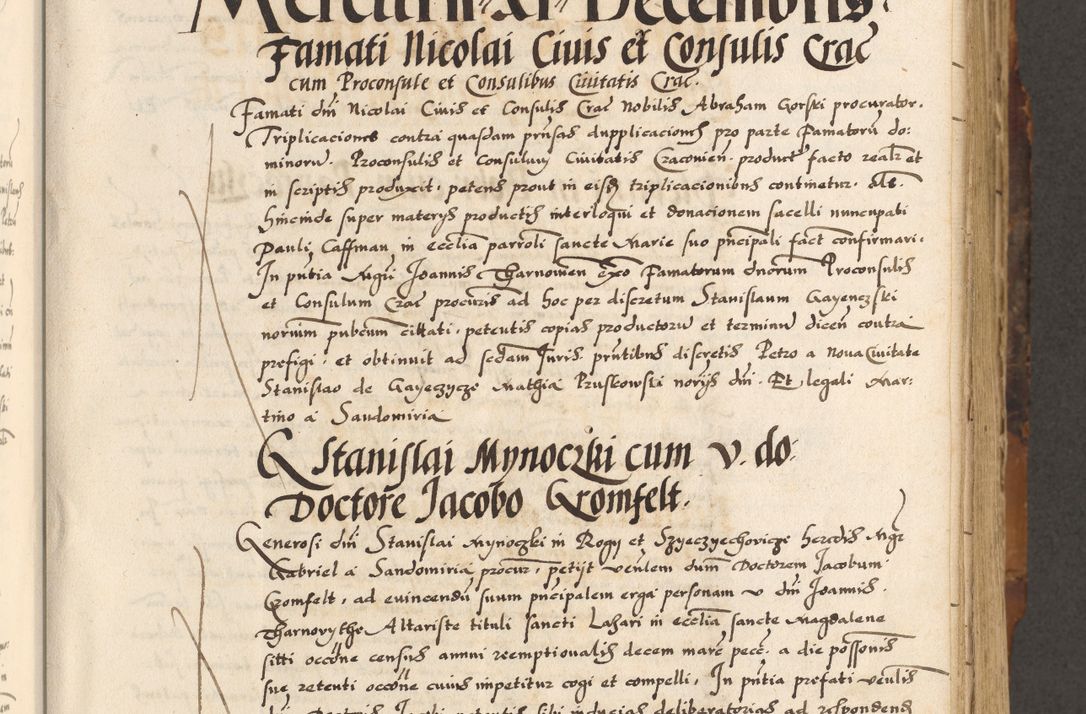 Mercurii xi Decembris.
Famati Nicolai Civis et Consulis Crac
cum Proconsule et Consulibus Civitatis Crac.
Famati dni Nicolai Civis et Consulis Crac Nobilis Abraham Gorski procurator.
Triplicaciones contra quasdam prnsas dupplicaciones pro parte Famatoru do:
minoru. Proconsulis et Consulum Civitatis Cracovien. product facto realr et
in scriptis produxit. petens prout in eisd triplicacionibus continetur.
hincinde super materys productis interloqui et donacionem sacelli nuncupati
Pauli Caffman in ecclia parroli sancte Marie suo pncipali fact confirmari.
In pntia Mgri Joannis Tharnowen Exo Famatorum dnorum Proconsulis
et Consulum Crac procuris ad hoc per discretum Stanislaum Gayenczski
norium pubcum cittati. petentis copias productoru et terminu dicen contra
prefigi. et obtinuit ad scdam Juris. prntibus discretis Petro a Nova Civitate
Stanislao de Gayeczycze Mathia Pruskowski norys dni. Et legali Mar-
tino a Sandomiria
G Stanislai Mynoczki cum v. do.
Doctore Jacobo Gromfelt.
Generosi dni Stanislai Mynoczki in Rogy et Szyeczyechovicze heredis Mgr
Gabriel a Sandomiria procur. petyt venlem dnum Doctorem Jacobum
Gomfelt, ad evincendu suum pncipalem erga personam v dni Joannis.
Tharnovythe Altariste tituli sancti Lazari in ecclia sancte Magdalene
sitti occone census annui reemptionalis decem marc pecc. a die possonis
sue retenti occone cuius impetitur cogi et compelli, In pntia prefati venlis
dni Doctoris Jacobi petentis sibi inducias deliberatorias ad respondend